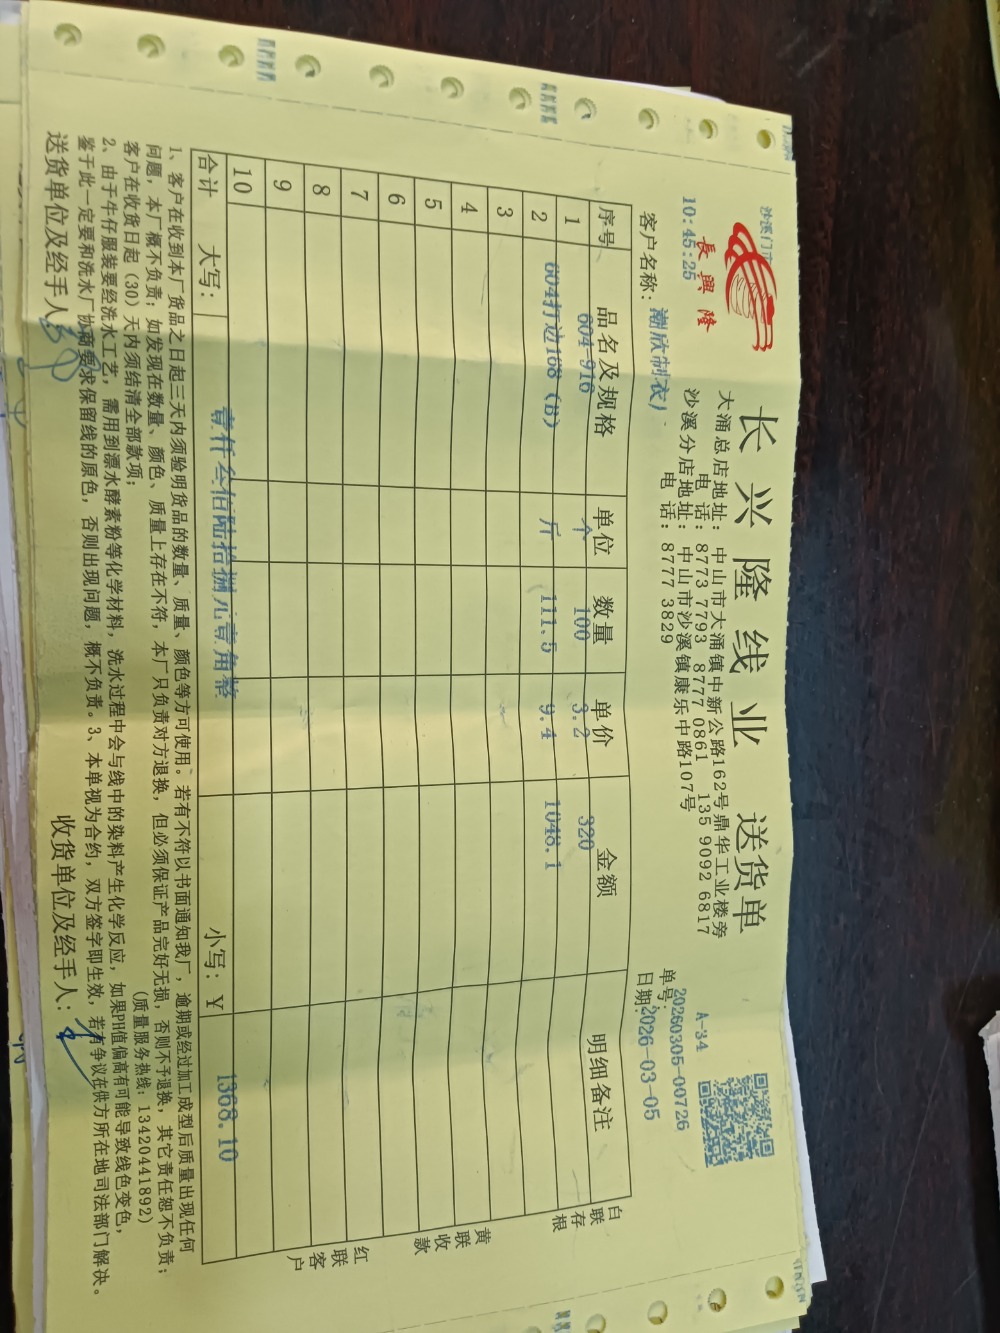 沙溪门市
長興隆
10:45:25
长兴隆线业 送货单
大涌总店地址: 中山市大涌镇中新公路162号鼎华工业楼旁
电 话: 8773 7793 8777 0861 135 9092 6817
沙溪分店地址: 中山市沙溪镇康乐中路107号
电 话: 8777 3829
A-34
单号: 20260305-00726
日期: 2026-03-05
客户名称: 潮欣制衣厂
序号 品名及规格 单位 数量 单价 金额 明细备注
1 604-916 个 100 3.2 320
2 604打边168 (B) 斤 111.5 9.4 1048.1
3
4
5
6
7
8
9
10
合计 大写: 壹仟叁佰陆拾捌元壹角整 小写: ¥ 1368.10
白联存根
黄联收款
红联客户
1、客户在收到本厂货品之日起三天内须验明货品的数量、质量、颜色等方可使用。若有不符以书面通知我厂,逾期或经过加工成型后质量出现任何
问题,本厂概不负责;如发现在数量、颜色、质量上存在不符,本厂只负责对方退换,但必须保证产品完好无损,否则不予退换,其它责任恕不负责;
客户在收货日起(30)天内须结清全部款项; (质量服务热线: 13420441892)
2、由于牛仔服装要经洗水工艺,需用到漂水酵素粉等化学材料,洗水过程中会与线中的染料产生化学反应,如果PH值偏高有可能导致线色变色,
鉴于此一定要和洗水厂协商要求保留线的原色,否则出现问题,概不负责。3、本单视为合约,双方签字即生效,若有争议在供方所在地司法部门解决。
送货单位及经手人: 收货单位及经手人: